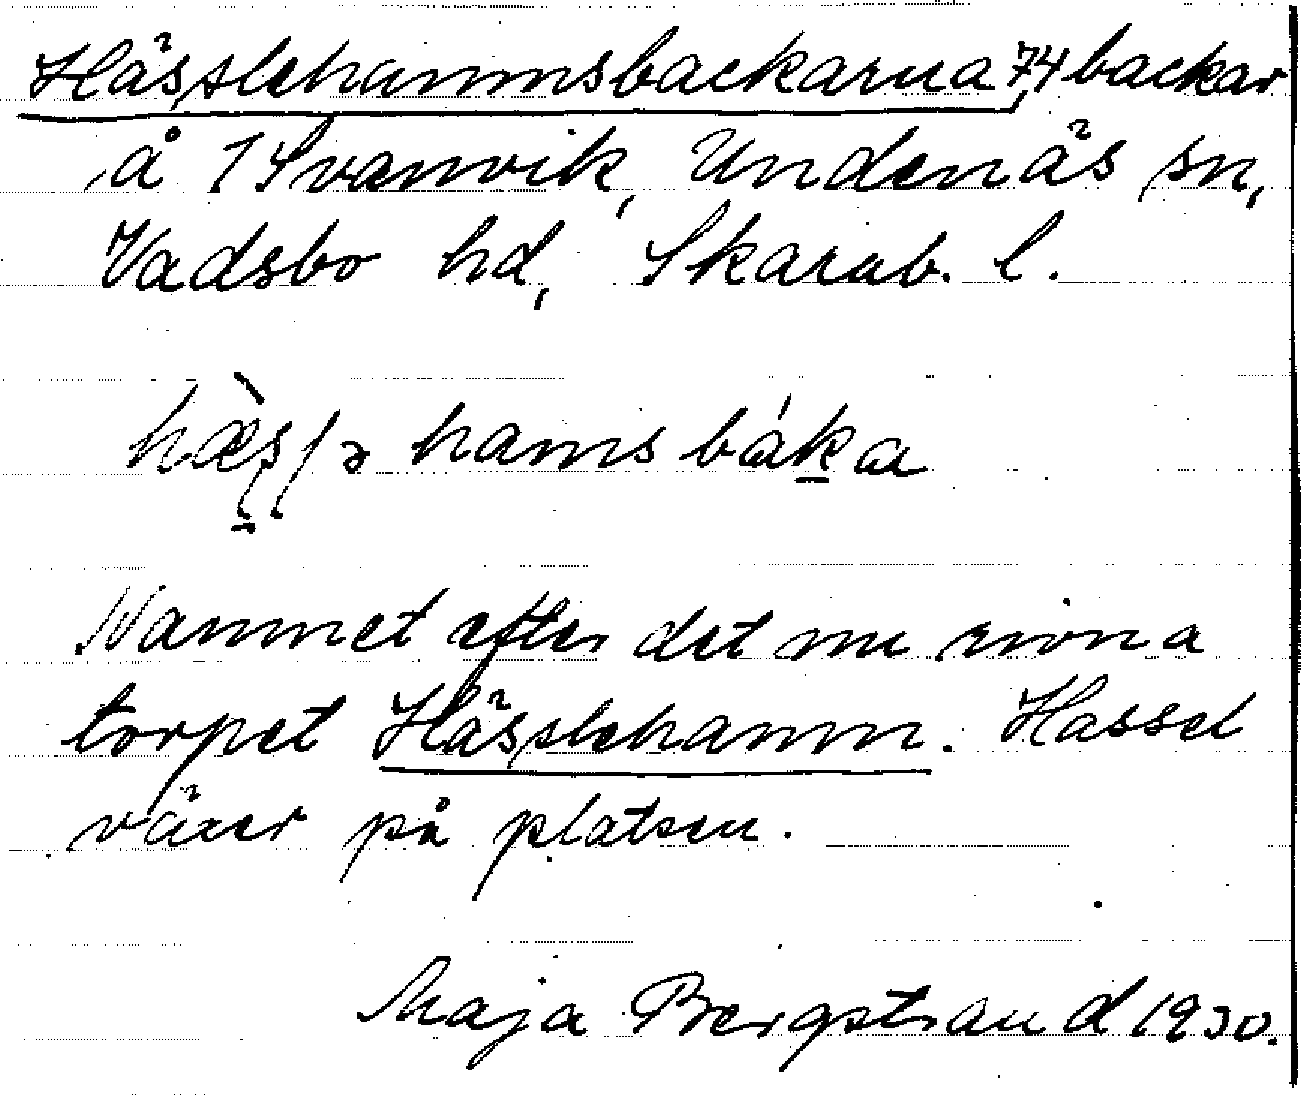 Hässlehammsbackarna, 74 backar
å 1 Svanvik, Undenäs sn,
Vadsbo hd, Skarab. l.
hæ̀sʃə hams bákɑ
Namnet efter det nu rivna
torpet Hässlehamm. Hassel
växer på platsen.
Maja Bergstrand 1930.